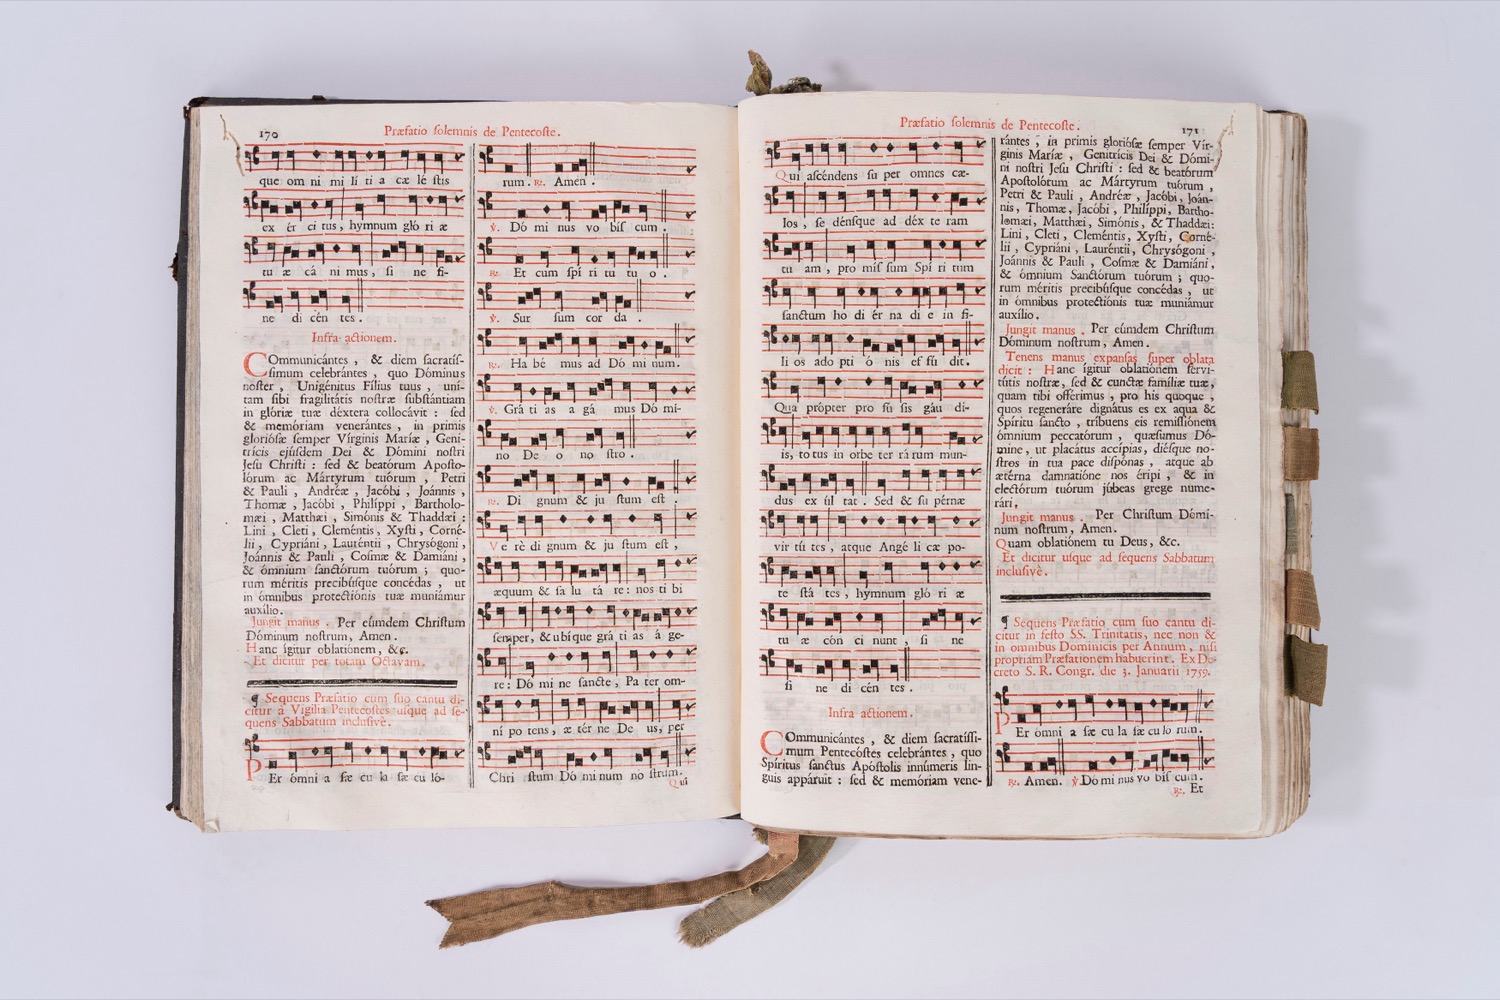 170
Præfatio solemnis de Pentecoste.
que om ni mi lí ti a cæ lé stis
ex ér ci tus, hymnum gló ri æ
tu æ cá ni mus, si ne fi-
ne di cén tes.
Infra actionem.
COmmunicántes, & diem sacratíſ-
ſimum celebrántes, quo Dóminus
noſter, Unigénitus Fílius tuus, uní-
tam ſibi fragilitátis noſtræ ſubſtántiam
in glóriæ tuæ déxtera collocávit : ſed
& memóriam venerántes, in primis
glorióſæ ſemper Vírginis Maríæ, Geni-
trícis ejúſdem Dei & Dómini noſtri
Jeſu Chriſti : ſed & beatórum Apoſto-
lórum ac Mártyrum tuórum, Petri
& Pauli, Andréæ, Jacóbi, Joánnis,
Thomæ, Jacóbi, Philíppi, Bartholo-
mæi, Matthæi, Simónis & Thaddæi :
Lini, Cleti, Cleméntis, Xyſti, Corné-
lii, Cypriáni, Lauréntii, Chryſógoni,
Joánnis & Pauli, Coſmæ & Damiáni,
& ómnium ſanctórum tuórum ; quo-
rum méritis precibúſque concédas, ut
in ómnibus protectiónis tuæ muniámur
auxílio.
Jungit manus. Per eúmdem Chriſtum
Dóminum noſtrum, Amen.
Hanc ígitur oblatiónem, &c.
Et dicitur per totam Octavam.
¶ Sequens Præfatio cum ſuo cantu di-
citur à Vigilia Pentecoſtes uſque ad ſe-
quens Sabbatum incluſivè.
PEr ómni a ſæ cu la ſæ cu ló-
rum. ℟. Amen.
℣. Dó mi nus vo biſ cum.
℟. Et cum ſpí ri tu tu o.
℣. Sur ſum cor da.
℟. Ha bé mus ad Dó mi num.
℣. Grá ti as a gá mus Dó mi-
no De o no ſtro.
℟. Di gnum & ju ſtum eſt.
Ve rè di gnum & ju ſtum eſt,
æquum & ſa lu tá re : nos ti bi
ſemper, & ubíque grá ti as á ge-
re : Dó mi ne ſancte, Pa ter om-
ní po tens, æ tér ne De us, per
Chri ſtum Dó mi num no ſtrum.
Qui
Præfatio ſolemnis de Pentecoſte.
171
Qui aſcéndens ſu per omnes cæ-
los, ſe dénſque ad déx te ram
tu am, pro miſ ſum Spí ri tum
ſanctum ho di ér na di e in fí-
li os ado pti ó nis ef fú dit.
Qua própter pro fú ſis gáu di-
is, to tus in orbe ter rá rum mun-
dus ex úl tat. Sed & ſu pérnæ
vir tú tes, atque Angé li cæ po-
te ſtá tes, hymnum gló ri æ
tu æ cón ci nunt, ſi ne
fi ne di cén tes.
Infra actionem.
COmmunicántes, & diem ſacratíſſi-
mum Pentecóſtes celebrántes, quo
Spíritus ſanctus Apóſtolis innúmeris lin-
guis appáruit : ſed & memóriam vene-
rántes, in primis glorióſæ ſemper Vír-
ginis Maríæ, Genitrícis Dei & Dómi-
ni noſtri Jeſu Chriſti : ſed & beatórum
Apoſtolórum ac Mártyrum tuórum,
Petri & Pauli, Andréæ, Jacóbi, Joán-
nis, Thomæ, Jacóbi, Philíppi, Bartho-
lomæi, Matthæi, Simónis, & Thaddæi :
Lini, Cleti, Cleméntis, Xyſti, Corné-
lii, Cypriáni, Lauréntii, Chryſógoni,
Joánnis & Pauli, Coſmæ & Damiáni,
& ómnium Sanctórum tuórum ; quo-
rum méritis precibúſque concédas, ut
in ómnibus protectiónis tuæ muniámur
auxílio.
Jungit manus. Per eúmdem Chriſtum
Dóminum noſtrum, Amen.
Tenens manus expanſas ſuper oblata
dicit : Hanc ígitur oblatiónem ſervi-
tútis noſtræ, ſed & cunctæ famíliæ tuæ,
quam tibi offérimus, pro his quoque,
quos regeneráre dignátus es ex aqua &
Spíritu ſancto, tríbuens eis remiſſiónem
ómnium peccatórum, quæſumus Dó-
mine, ut placátus accípias, dieſque no-
ſtros in tua pace diſpónas, atque ab
ætérna damnatióne nos éripi, & in
electórum tuórum júbeas grege nume-
rári,
Jungit manus. Per Chriſtum Dómi-
num noſtrum, Amen.
Quam oblatiónem tu Deus, &c.
Et dicitur uſque ad ſequens Sabbatum
incluſivè.
¶ Sequens Præfatio cum ſuo cantu di-
citur in feſto SS. Trinitatis, nec non &
in omnibus Dominicis per Annum, niſi
propriam Præfationem habuerint. Ex De-
creto S. R. Congr. die 3. Januarii 1759.
PEr ómni a ſæ cu la ſæ cu ló rum.
℟. Amen. ℣. Dó mi nus vo biſ cum.
℟. Et